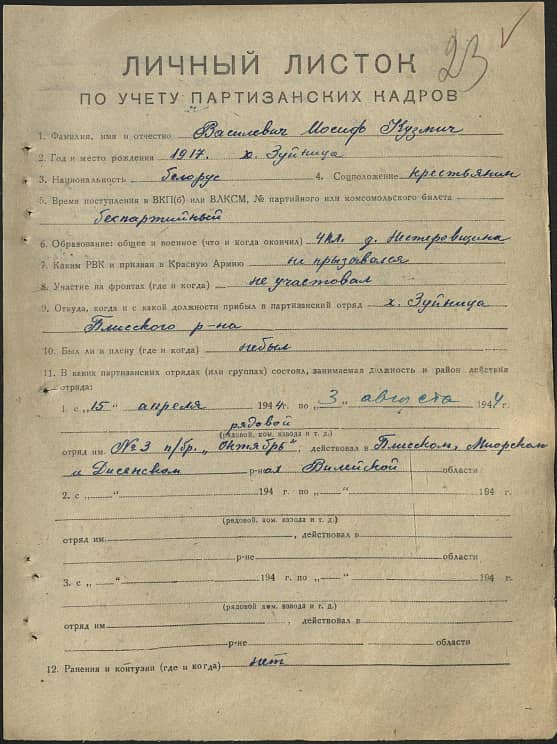 23
ЛИЧНЫЙ ЛИСТОК
ПО УЧЕТУ ПАРТИЗАНСКИХ КАДРОВ
1. Фамилия, имя и отчество Василевич Иосиф Кузмич
2. Год и место рождения 1917. х. Зуйница
3. Национальность белорус 4. Соцположение крестьянин
5. Время поступления в ВКП(б) или ВЛКСМ, № партийного или комсомольского билета
беспартийный
6. Образование: общее и военное (что и когда окончил) 4 кл. д. Нестеровщина
7. Каким РВК и призван в Красную Армию не прызывался
8. Участие на фронтах (где и когда) не участовал
9. Откуда, когда и с какой должности прибыл в партизанский отряд х. Зуйница
Плисского р-на
10. Был ли в плену (где и когда) небыл
11. В каких партизанских отрядах (или группах) состоял, занимаемая должность и район действия
отряда:
1. с „15" апреля 1944 г. по „3" августа 1944 г.
рядовой
(рядовой, ком. взвода и т. д.)
отряд им. №3 п/бр. „Октябрь", действовал в Плисском, Миорском
и Дисенском р-нах Вилейской области
2. с „ " 194 г. по „ " 194 г.
(рядовой, ком. взвода и т. д.)
отряд им. , действовал в
р-не области
3. с „ " 194 г. по „ " 194 г.
(рядовой ком. взвода и т. д.)
отряд им. , действовал в
р-не области
12. Ранения и контузии (где и когда) нет